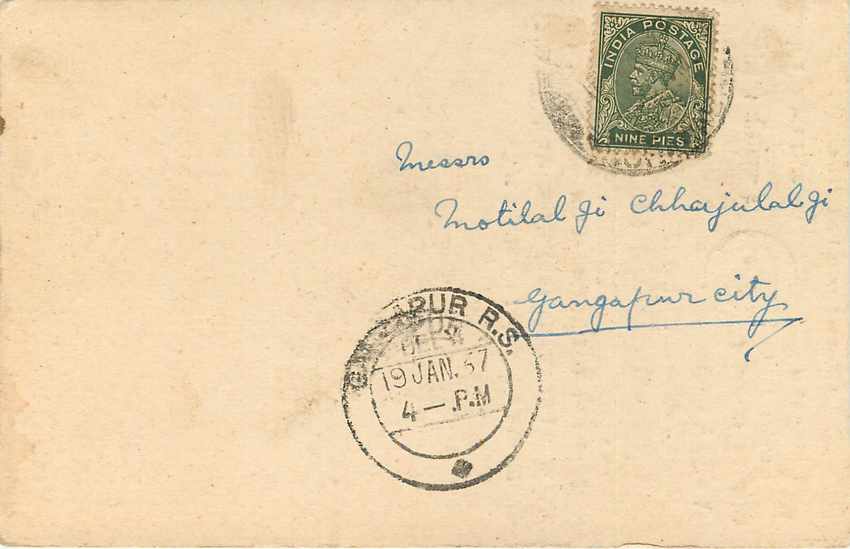 INDIA POSTAGE
NINE PIES
Messrs
Motilal Ji Chhajulal Ji
Gangapur city
R.S.
19 JAN. 37
4 — P.M